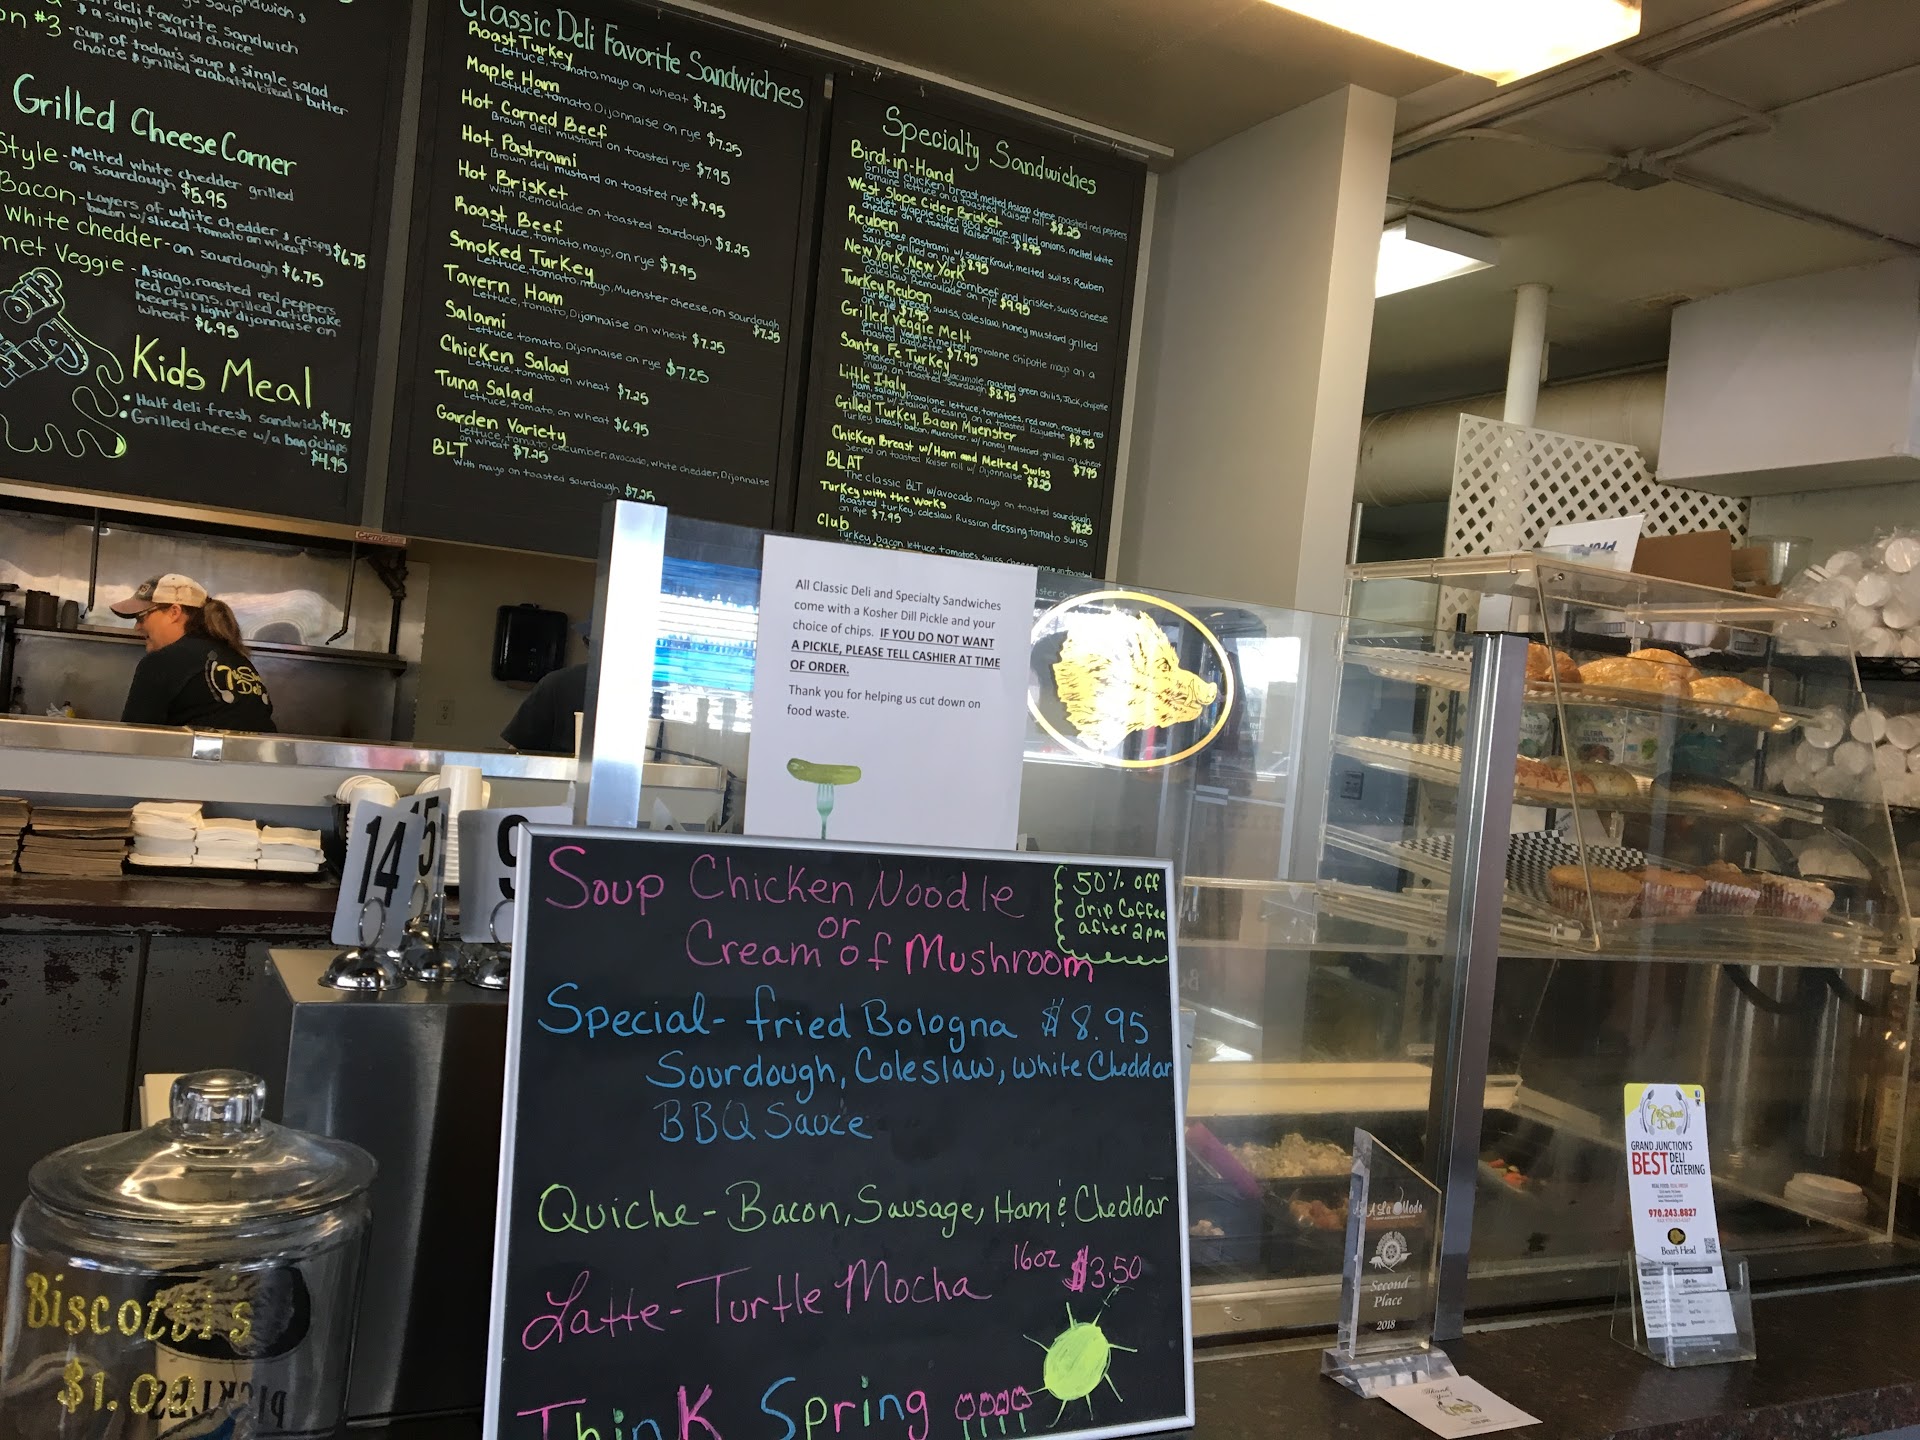 deli favorite sandwich
a single salad choice
#3 - cup of today's soup & single salad
choice & grilled ciabatta bread & butter
Grilled Cheese Corner
Style - Melted white cheddar grilled
on sourdough $5.95
Bacon - Layers of white chedder & crispy
bacon w/sliced tomato on wheat $6.75
White chedder - on sourdough $6.75
met Veggie - Asiago, roasted red peppers
red onions, grilled artichoke
hearts & light dijonnaise on
wheat $6.95
Kids Meal
• Half deli fresh sandwich $4.75
• Grilled cheese w/a bag o'chips
$4.95
Classic Deli Favorite Sandwiches
Roast Turkey
Lettuce, tomato, mayo on wheat $7.25
Maple Ham
Lettuce, tomato, Dijonnaise on rye $7.25
Hot Corned Beef
Brown deli mustard on toasted rye $7.95
Hot Pastrami
Brown deli mustard on toasted rye $7.95
Hot Brisket
With Remoulade on toasted sourdough $8.25
Roast Beef
Lettuce, tomato, mayo, on rye $7.95
Smoked Turkey
Lettuce, tomato, mayo, Muenster cheese, on sourdough
$7.25
Tavern Ham
Lettuce, tomato, Dijonnaise on wheat $7.25
Salami
Lettuce, tomato, Dijonnaise on rye $7.25
Chicken Salad
Lettuce, tomato, on wheat $7.25
Tuna Salad
Lettuce, tomato, on wheat $6.95
Garden Variety
Lettuce, tomato, cucumber, avocado, white chedder, Dijonnaise
on wheat $7.25
BLT
With mayo on toasted sourdough $7.25
Specialty Sandwiches
Bird-in-Hand
Grilled chicken breast, melted Asiago cheese, roasted red peppers
romaine lettuce on a toasted Kaiser roll - $8.25
West Slope Cider Brisket
Brisket w/apple cider BBQ sauce, grilled onions, melted white
chedder on a toasted Kaiser roll - $8.95
Reuben
Corn beef pastrami w/sauerkraut, melted swiss, Reuben
sauce grilled on rye $8.95
New York, New York
Double decker w/cornbeef and brisket, swiss cheese
coleslaw, Remoulade on rye $9.95
Turkey Reuben
Turkey breast, swiss, coleslaw, honey mustard grilled
on rye $7.95
Grilled Veggie Melt
Grilled veggies, melted provolone chipotle mayo on a
toasted baguette $7.95
Santa Fe Turkey
Smoked turkey, w/guacamole, roasted green chilis, Jack, chipotle
mayo, on toasted sourdough $8.95
Little Italy
Ham, salami, Provolone, lettuce, tomatoes, red onion, roasted red
peppers w/Italian dressing on a toasted baguette $8.95
Grilled Turkey, Bacon Muenster
Turkey breast, bacon, muenster, w/honey mustard grilled on wheat
$7.95
Chicken Breast w/Ham and Melted Swiss
Served on toasted Kaiser roll w/Dijonnaise $8.25
BLAT
The classic BLT w/avocado, mayo on toasted sourdough
$8.25
Turkey with the works
Roasted turkey, coleslaw, Russian dressing tomato swiss
on Rye $7.95
Club
Turkey, bacon, lettuce, tomatoes, swiss cheese, mayo on toasted
All Classic Deli and Specialty Sandwiches
come with a Kosher Dill Pickle and your
choice of chips. IF YOU DO NOT WANT
A PICKLE, PLEASE TELL CASHIER AT TIME
OF ORDER.
Thank you for helping us cut down on
food waste.
7th Street
Deli
14
15
9
Soup Chicken Noodle
or
Cream of Mushroom
50% off
drip Coffee
after 2pm
Special - fried Bologna $8.95
Sourdough, Coleslaw, White Cheddar
BBQ Sauce
Quiche - Bacon, Sausage, Ham & Cheddar
Latte - Turtle Mocha 16oz $3.50
Think Spring
Biscotti's
$1.00
PICKLES
A La Mode
Second
Place
2018
7th Street
Deli
GRAND JUNCTION'S
BEST DELI
CATERING
970.243.8827
Boar's Head
Thank
You!